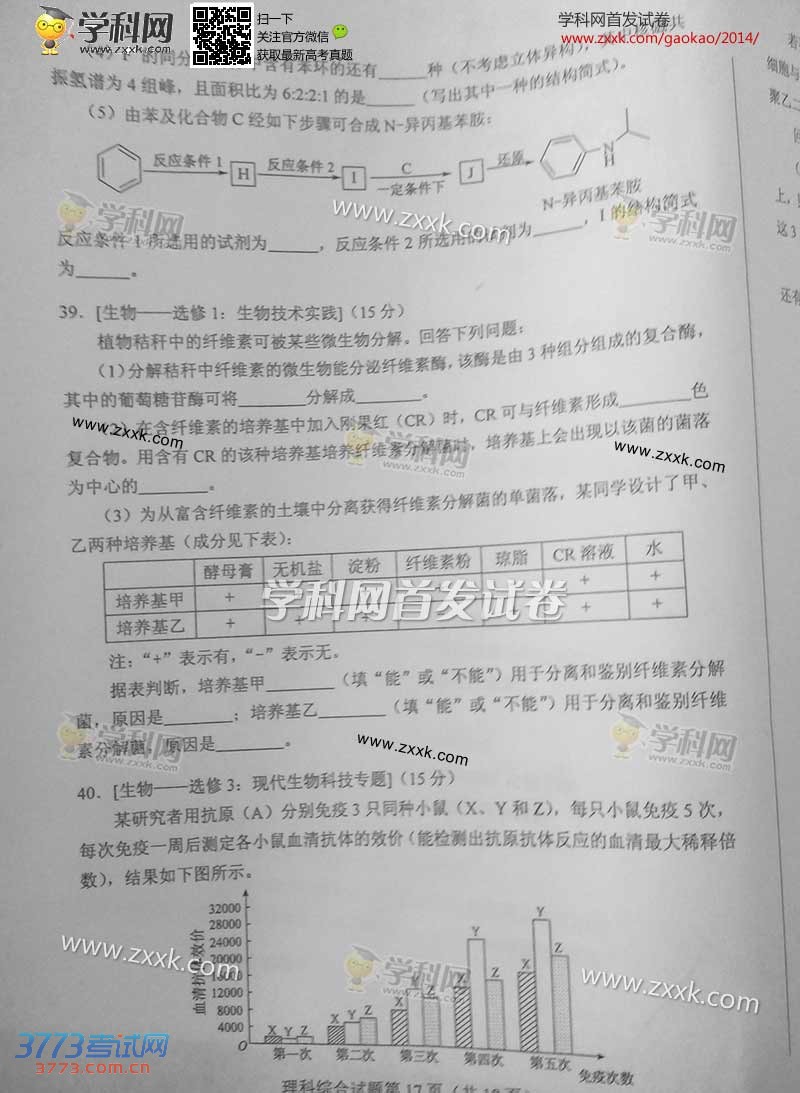 学科网
www.zxxk.com
扫一下
关注官方微信
获取最新高考真题
学科网首发试卷
www.zxxk.com/gaokao/2014/
含有苯环的还有______种（不考虑立体异构）
振氢谱为 4 组峰，且面积比为 6:2:2:1 的是______（写出其中一种的结构简式）。
（5）由苯及化合物 C 经如下步骤可合成 N-异丙基苯胺：
反应条件 1 H 反应条件 2 I C 一定条件下 J 还原 N H
N-异丙基苯胺
反应条件 1 所选用的试剂为______，反应条件 2 所选用的试剂为______，I 的结构简式
为______。
39．[生物——选修 1：生物技术实践]（15 分）
植物秸秆中的纤维素可被某些微生物分解。回答下列问题：
（1）分解秸秆中纤维素的微生物能分泌纤维素酶，该酶是由 3 种组分组成的复合酶，
其中的葡萄糖苷酶可将________分解成________。
（2）在含纤维素的培养基中加入刚果红（CR）时，CR 可与纤维素形成________色
复合物。用含有 CR 的该种培养基培养纤维素分解菌时，培养基上会出现以该菌的菌落
为中心的________。
（3）为从富含纤维素的土壤中分离获得纤维素分解菌的单菌落，某同学设计了甲、
乙两种培养基（成分见下表）：
酵母膏 无机盐 淀粉 纤维素粉 琼脂 CR 溶液 水
培养基甲 + + +
培养基乙 + + +
学科网首发试卷
注：“+”表示有，“-”表示无。
据表判断，培养基甲________（填“能”或“不能”）用于分离和鉴别纤维素分解
菌，原因是________；培养基乙________（填“能”或“不能”）用于分离和鉴别纤维
素分解菌，原因是________。
40．[生物——选修 3：现代生物科技专题]（15 分）
某研究者用抗原（A）分别免疫 3 只同种小鼠（X、Y 和 Z），每只小鼠免疫 5 次，
每次免疫一周后测定各小鼠血清抗体的效价（能检测出抗原抗体反应的血清最大稀释倍
数），结果如下图所示。
血清抗体效价
32000
28000
24000
20000
12000
8000
4000
O
X Y Z
X Y Z
X Y Z
X Y Z
X Y Z
第一次 第二次 第三次 第四次 第五次 免疫次数
理科综合试题第 17 页
3773考试网
3773.com.cn
www.zxxk.com
细胞与
聚乙二
上，
这 3
还有